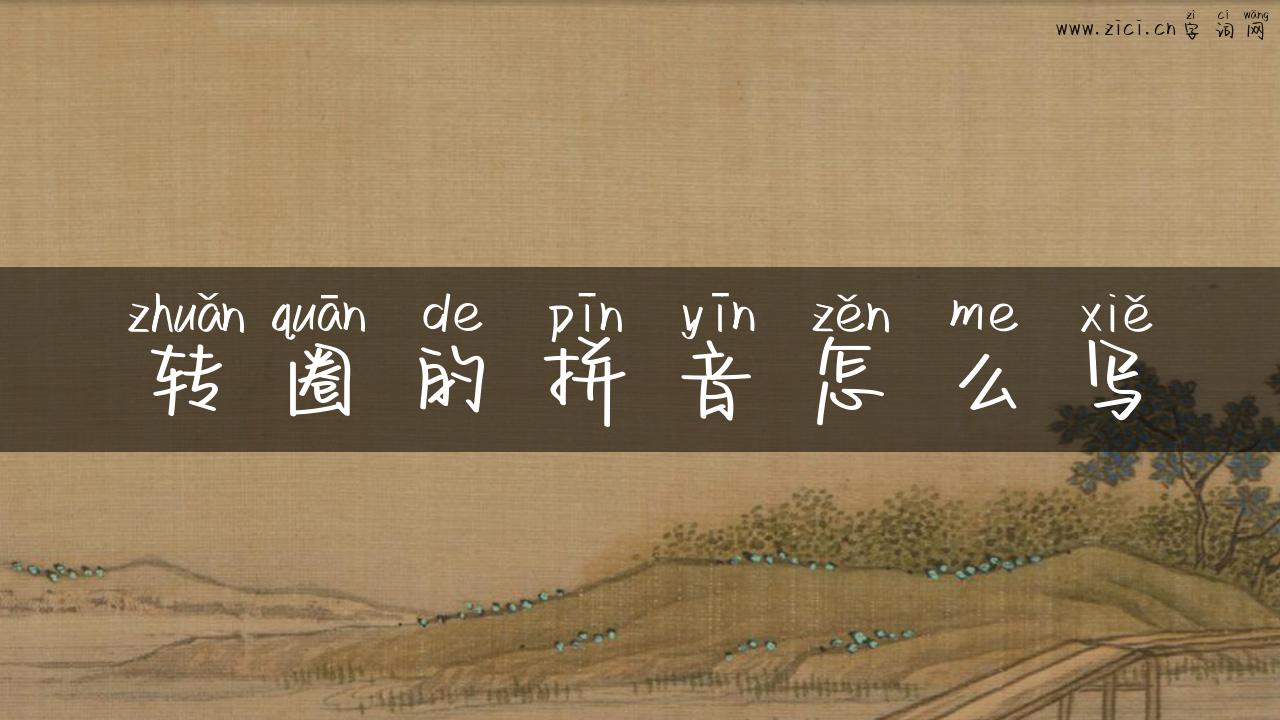 zì cí wǎng
www.zici.cn字词网
zhuǎn quān de pīn yīn zěn me xiě
转圈的拼音怎么写